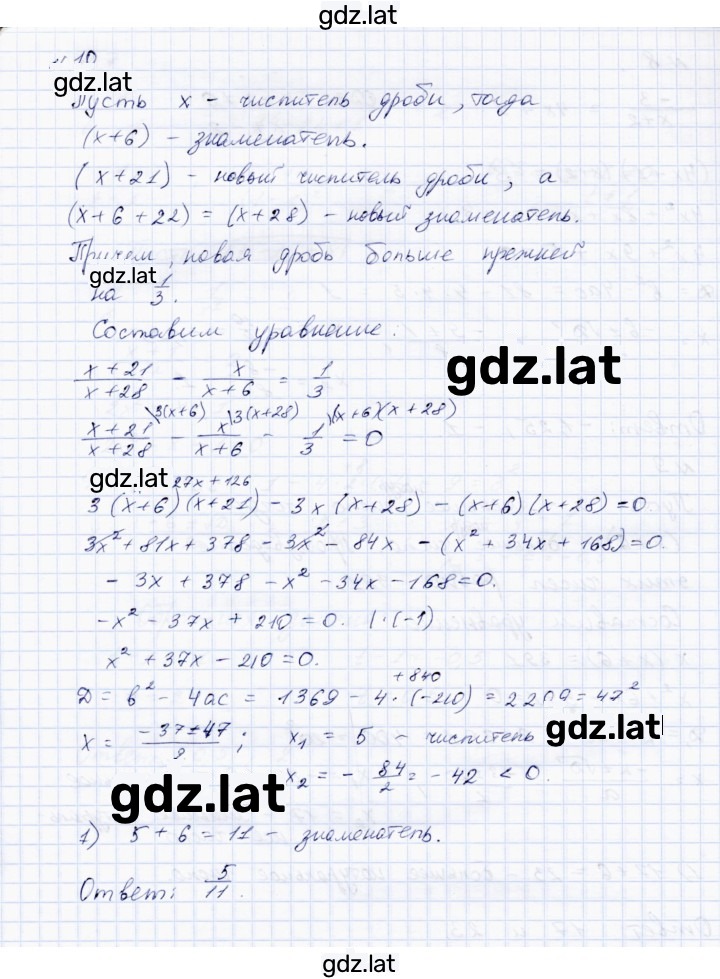 gdz.lat
10
gdz.lat
Пусть x – числитель дроби, тогда
(x+6) – знаменатель.
(x+21) – новый числитель дроби, а
(x+6+22) = (x+28) – новый знаменатель.
Причем, новая дробь больше прежней
gdz.lat
на 1/3.
Составим уравнение:
gdz.lat
x+21/x+28 – x/x+6 = 1/3
x+21/x+28 \3(x+6) – x/x+6 \3(x+28) – 1/3 \(x+6)(x+28) = 0
gdz.lat 27x+126
3(x+6)(x+21) – 3x(x+28) – (x+6)(x+28) = 0
3x² + 81x + 378 – 3x² – 84x – (x² + 34x + 168) = 0.
– 3x + 378 – x² – 34x – 168 = 0.
–x² – 37x + 210 = 0. |·(–1)
x² + 37x – 210 = 0.
+840
D = b² – 4ac = 1369 – 4·(–210) = 2209 = 47²
x = –37±47/2; x₁ = 5 – числитель gdz.lat
gdz.lat x₂ = – 84/2 = – 42 < 0.
1) 5 + 6 = 11 – знаменатель.
Ответ: 5/11.
gdz.lat